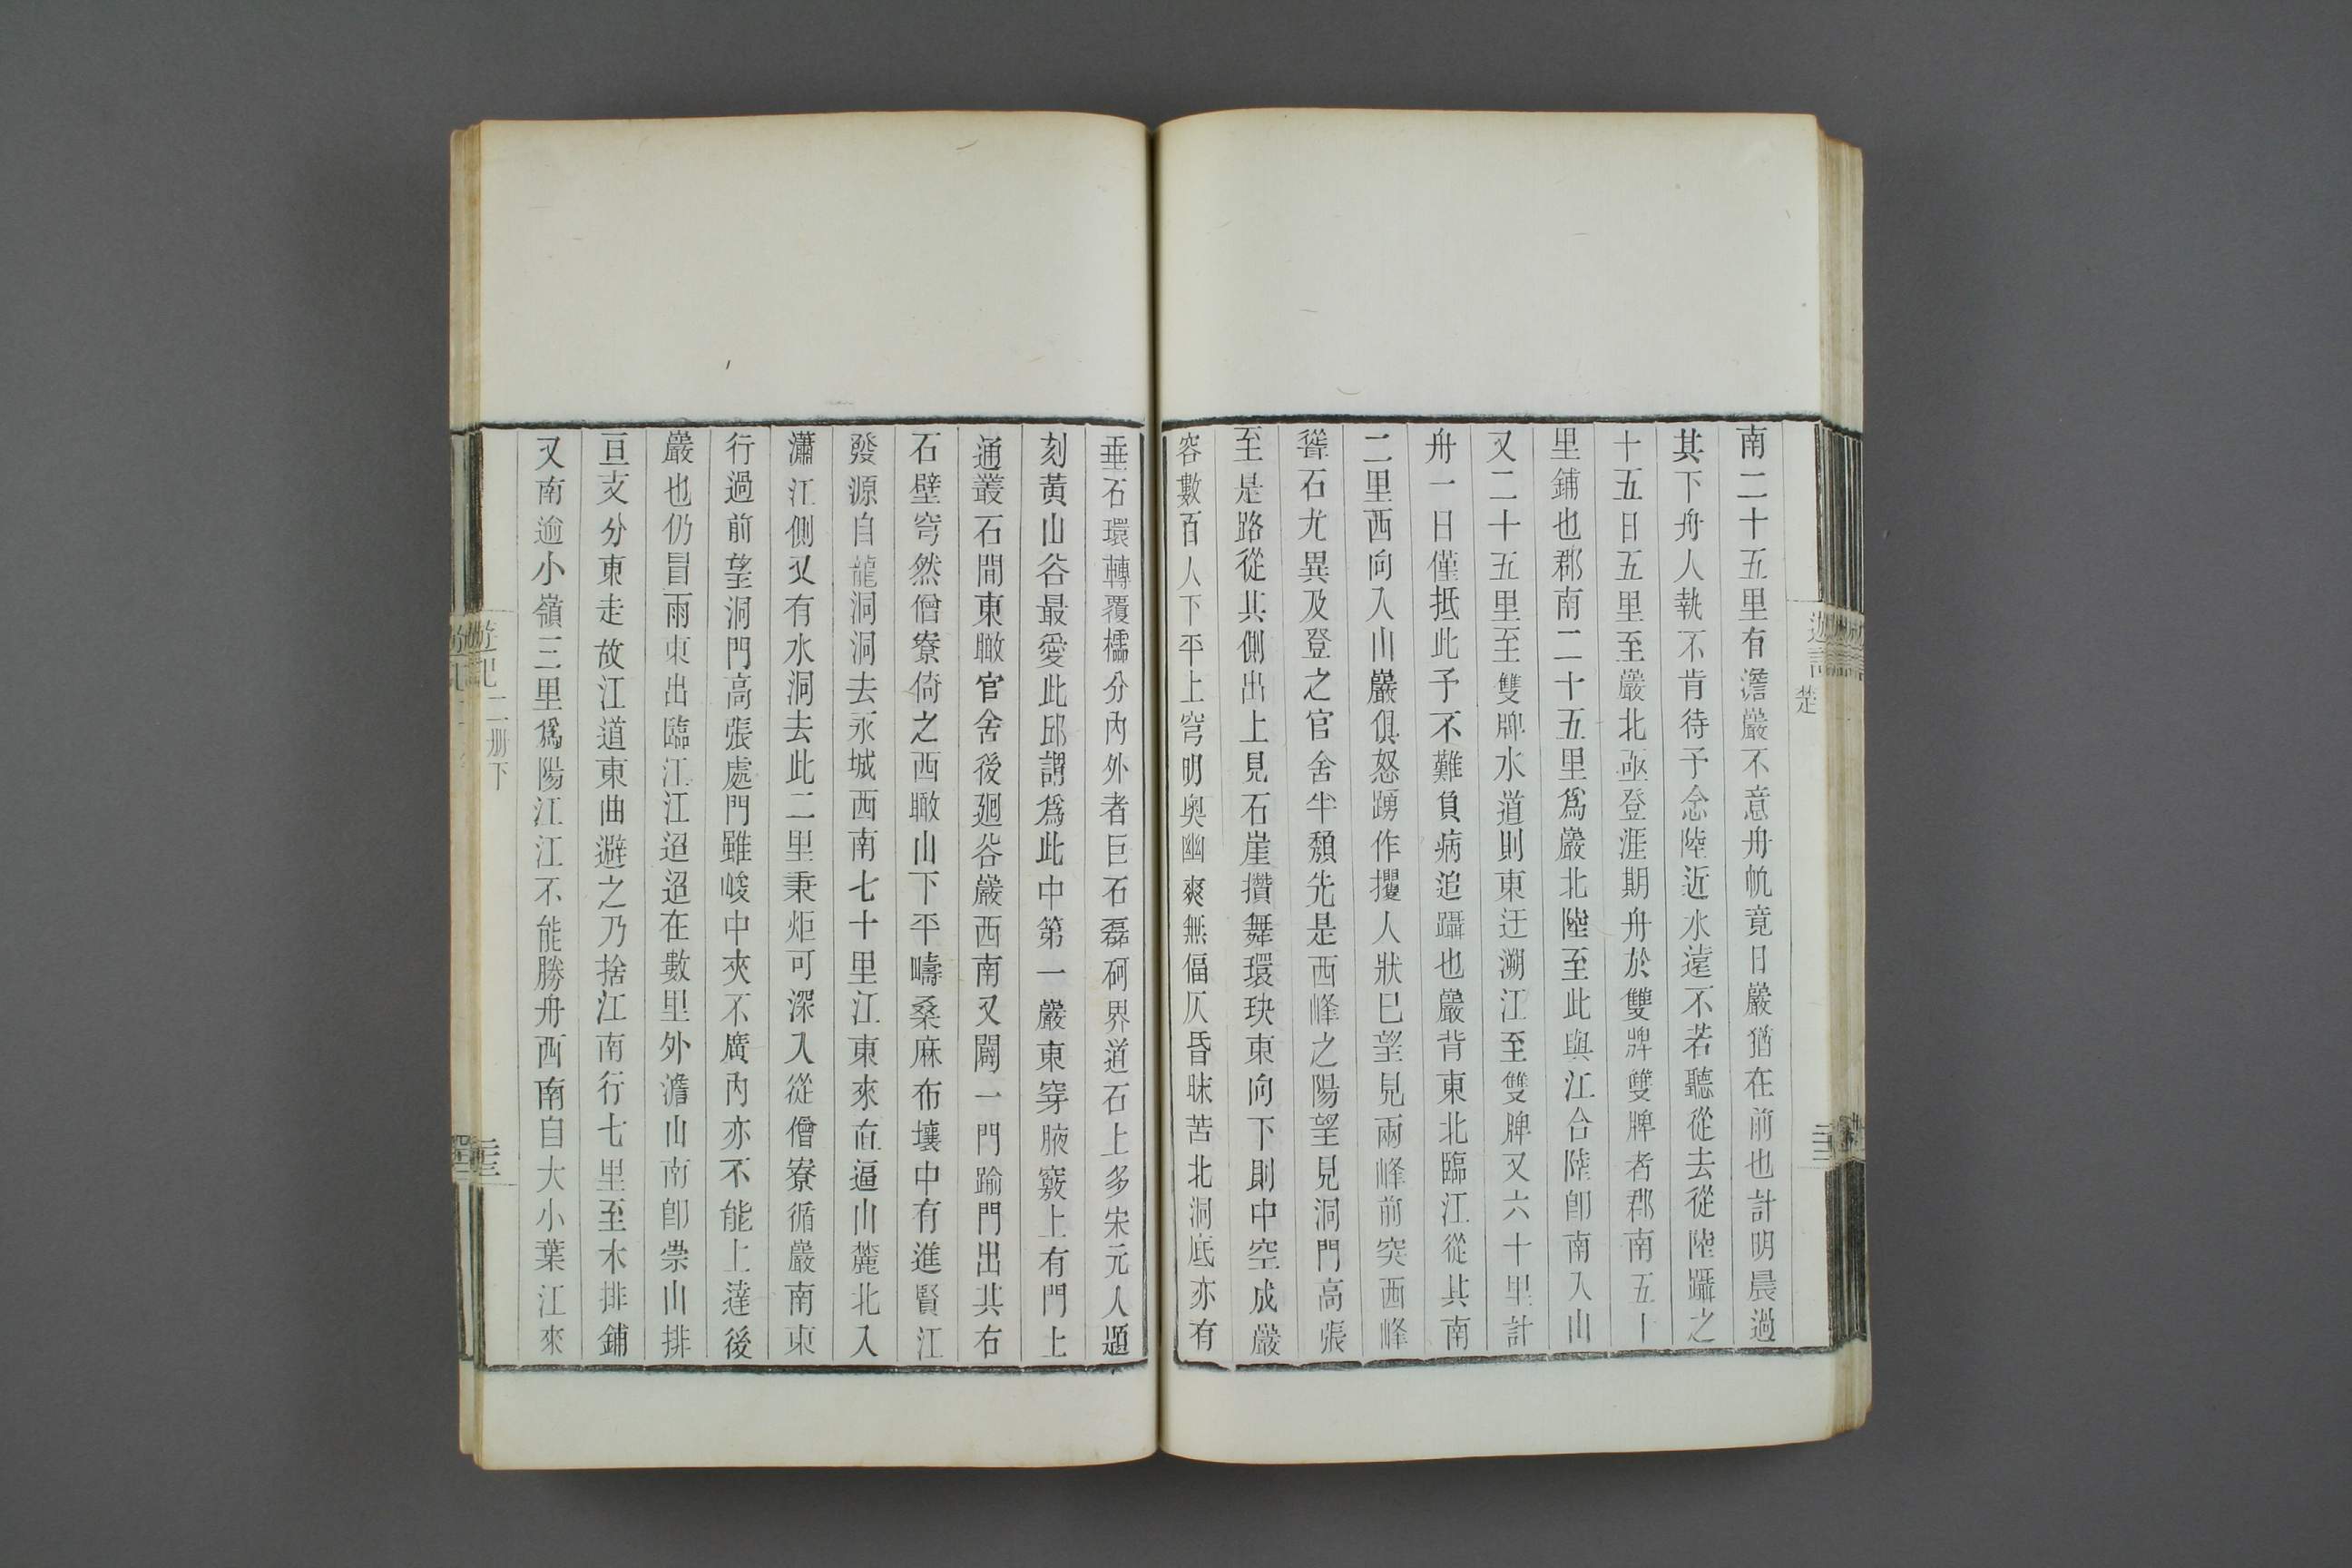 南二十五里有澹巖不意舟帆竟日巖猶在前也計明晨過
其下舟人執不肯待予念陸近水遠不若聽從去從陸躡之
十五日五里至巖北亟登涯期舟於雙牌雙牌者郡南五十
里鋪也郡南二十五里爲巖北陸至此與江合陸卽南入山
又二十五里至雙牌水道則東迂溯江至雙牌又六十里計
舟一日僅抵此予不難負病追躡也巖背東北臨江從其南
二里西向入山巖俱怒踴作攫人狀已望見兩峰前突西峰
聳石尤異及登之官舍半頹先是西峰之陽望見洞門高張
至是路從其側出上見石崖攢舞環玦東向下則中空成巖
容數百人下平上穹明奧幽爽無偪仄昏昧苦北洞底亦有
垂石環轉覆檽分內外者巨石磊砢界道石上多宋元人題
刻黃山谷最愛此邱謂爲此中第一巖東穿腋竅上有門上
通叢石間東瞰官舍後廻谷巖西南又闢一門踰門出其右
石壁穹然僧寮倚之西瞰山下平疇桑麻布壤中有進賢江
發源自龍洞洞去永城西南七十里江東來直逼山麓北入
瀟江側又有水洞去此二里秉炬可深入從僧寮循巖南東
行過前望洞門高張處門雖峻中夾不廣內亦不能上達後
巖也仍冒雨東出臨江江迢迢在數里外澹山南卽崇山排
亘支分東走故江道東曲避之乃捨江南行七里至木排鋪
又南逾小嶺三里爲陽江江不能勝舟西南自大小葉江來
遊記
二册下